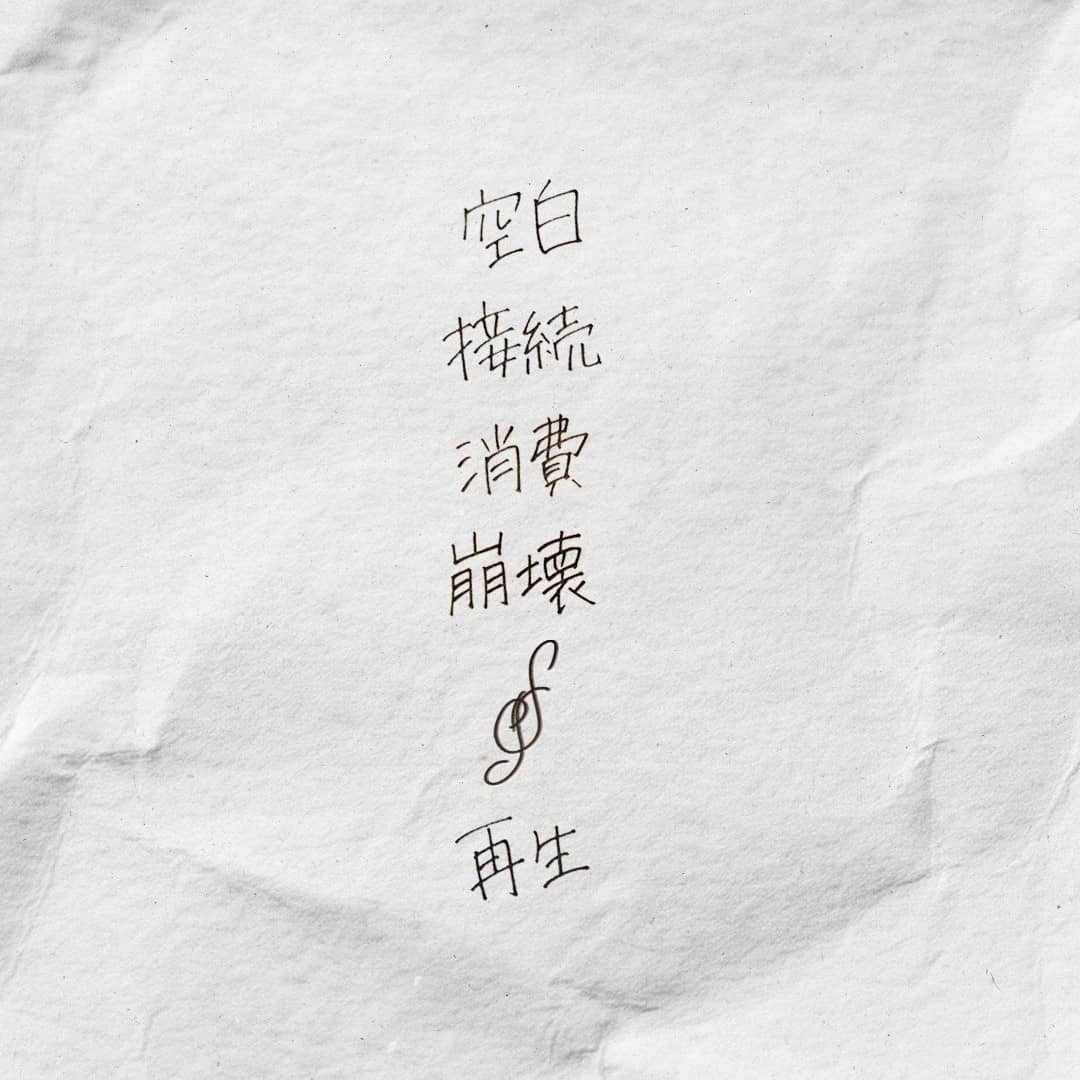 空白
接続
消費
崩壊
再生